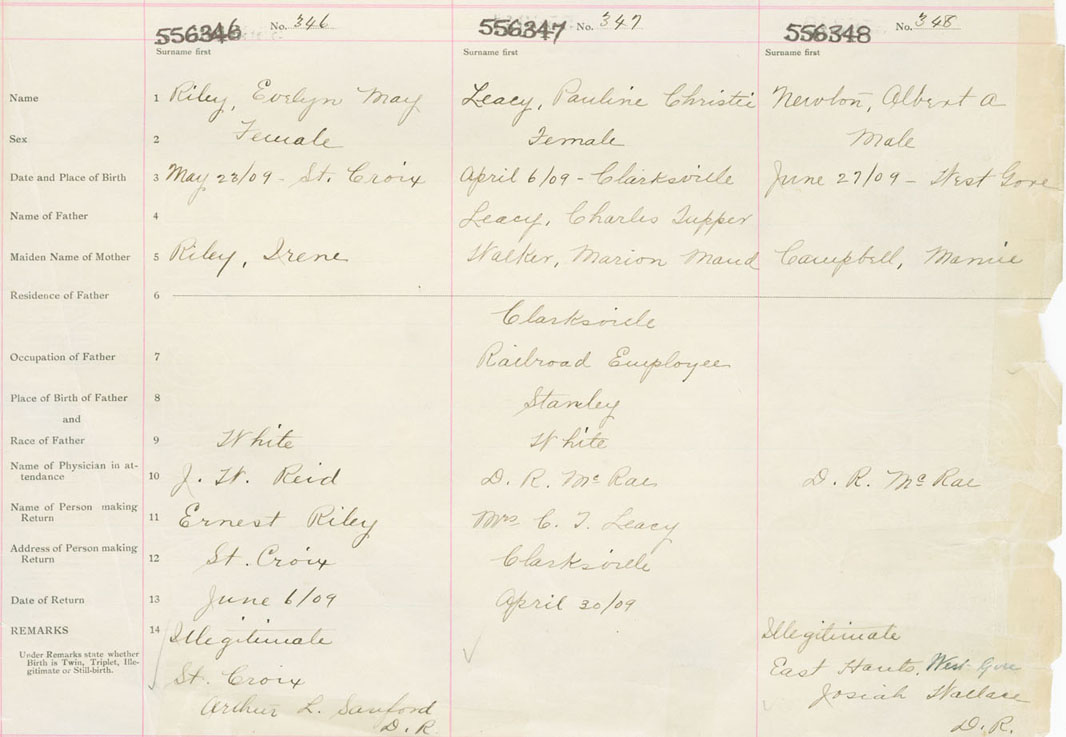 556346 No. 346 556347 No. 347 556348 No. 348
Surname first Surname first Surname first
Name 1 Riley, Evelyn May Leacy, Pauline Christie Newton, Albert A
Sex 2 Female Female Male
Date and Place of Birth 3 May 23/09 - St. Croix April 6/09 - Clarksville June 27/09 - West Gore
Name of Father 4 Leacy, Charles Tupper
Maiden Name of Mother 5 Riley, Irene Walker, Marion Maud Campbell, Mamie
Residence of Father 6
Clarksville
Occupation of Father 7 Railroad Employee
Place of Birth of Father 8 Stanley
and
Race of Father 9 White White
Name of Physician in at-
tendance 10 J. W. Reid D. R. McRae D. R. McRae
Name of Person making
Return 11 Ernest Riley Mrs C. T. Leacy
Address of Person making
Return 12 St. Croix Clarksville
Date of Return 13 June 6/09 April 30/09
REMARKS 14 Illegitimate Illegitimate
Under Remarks state whether
Birth is Twin, Triplet, Ille-
gitimate or Still-birth.
St. Croix East Hants, West Gore
Arthur L. Sanford Josiah Wallace
D. R. D. R.